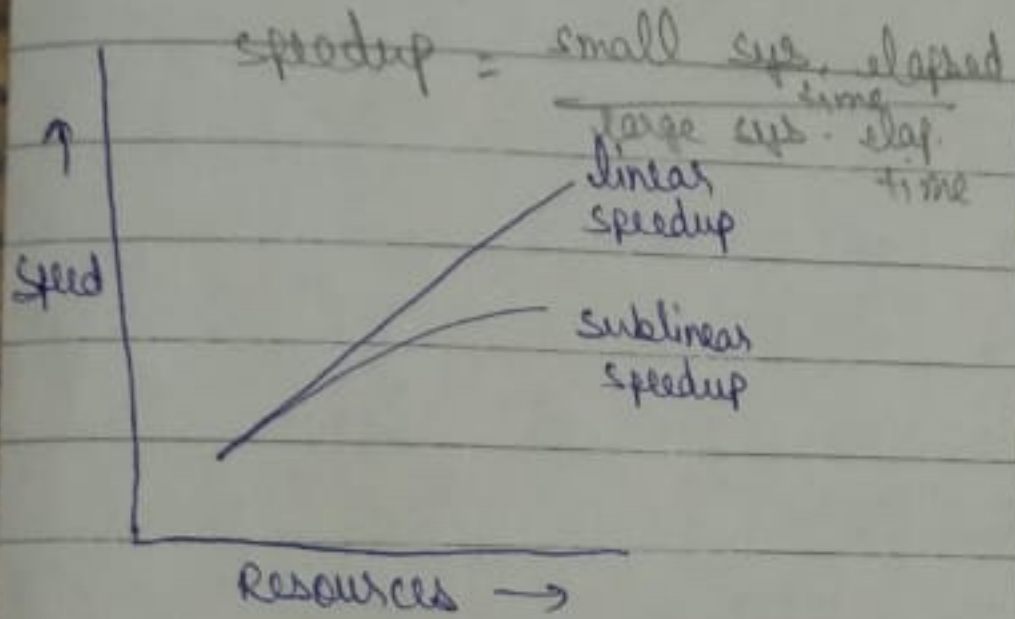 speedup = small sys. elapsed
time
large sys. elap.
time
↑
linear
speedup
speed
sublinear
speedup
Resources →